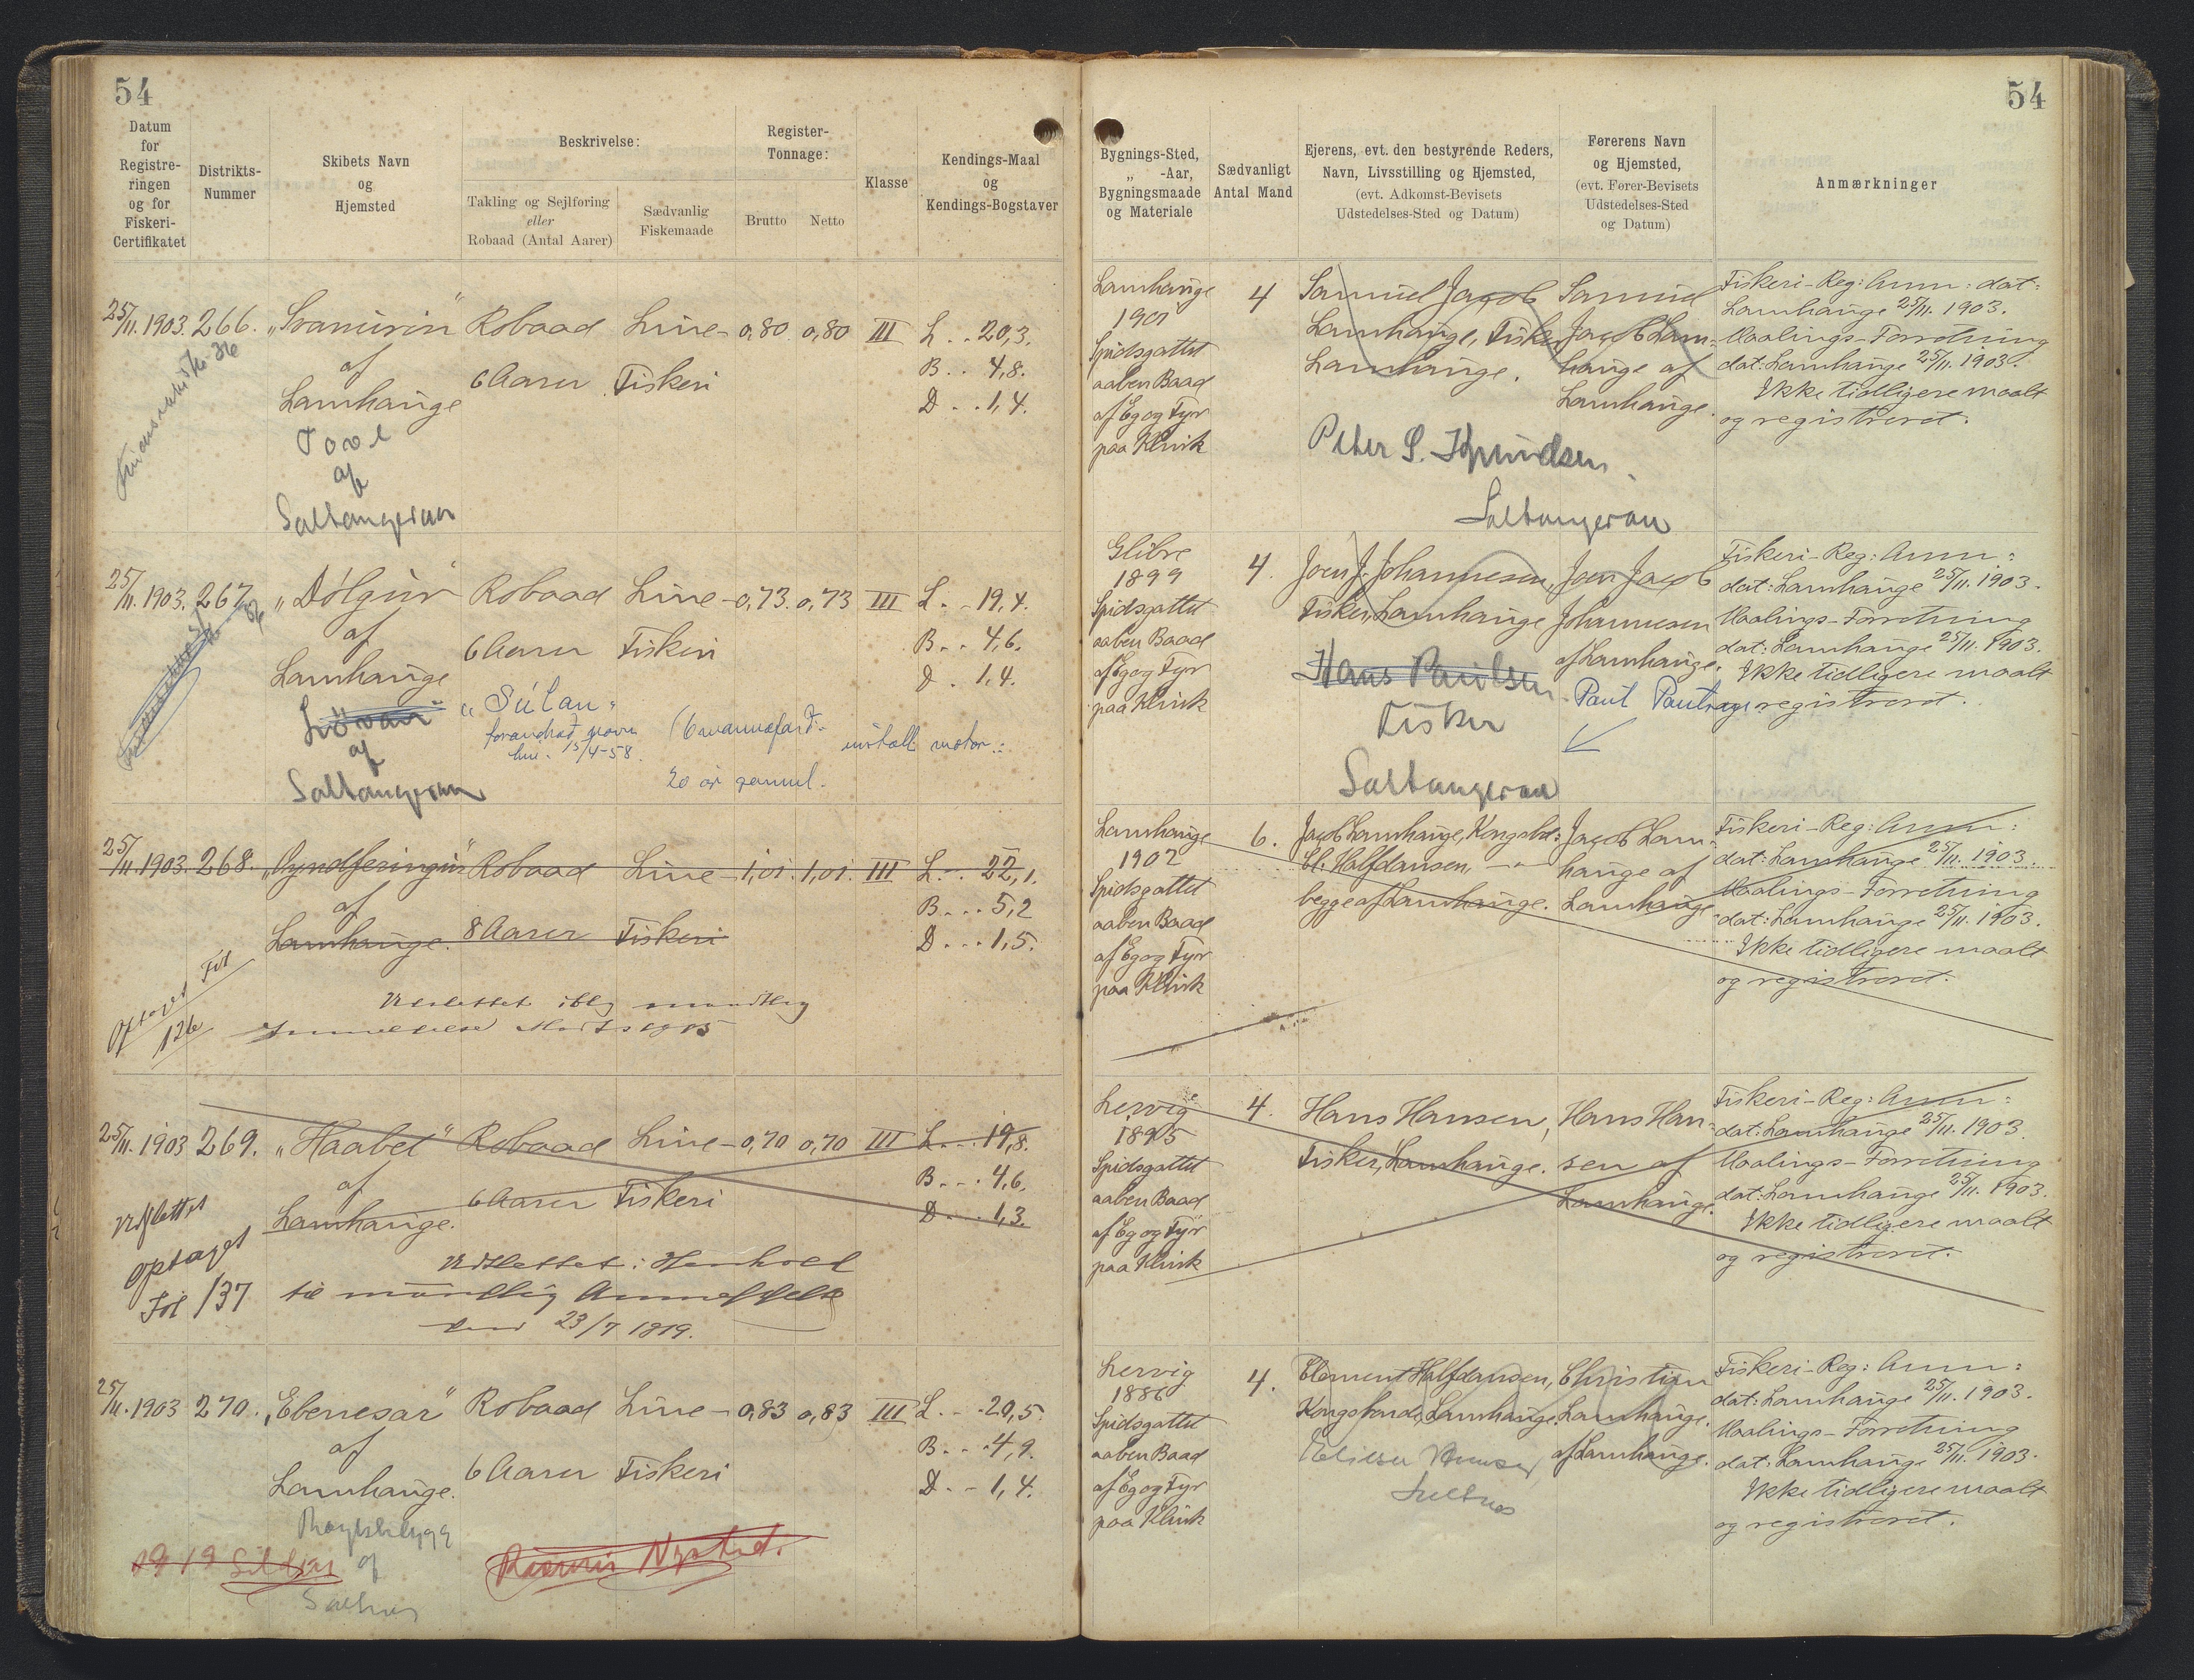 54
Datum
for
Registre-
ringen
og for
Fiskeri-
Certifikatet
Distrikts-
Nummer
Skibets Navn
og
Hjemsted
Beskrivelse:
Takling og Sejlføring
eller
Robaad (Antal Aarer)
Sædvanlig
Fiskemaade
Register-
Tonnage:
Brutto
Netto
Klasse
Kendings-Maal
og
Kendings-Bogstaver
25/11. 1903. 266. „Svanurin“ Robaad Line- 0,80. 0,80 III L. . 20,3.
af 6 Aarer Fiskeri B. . 4,8.
Lamhauge D . . 1,4.
Tove
af
Saltangeraa
25/11. 1903. 267. „Dólgur“ Robaad Line- 0,73. 0,73 III L. - 19,4.
af 6 Aarer Fiskeri B. . 4,6.
Lamhauge D . 1,4.
Løvan „Súlan“
af
Saltangeraa
15/4-58.
(6 mannafard. install motor.
20 ár gamul.
25/11. 1903. 268. „Gyndferingur“ Robaad Line 1,01. 1,01. III L. . 22,1.
af 8 Aarer Fiskeri B. . . 5,2
Lamhauge. D. . . 1,5.
Optaget Fol
126
Udslettet iflg mundtlig
25/11. 1903 269. „Haabet“ Robaad Line- 0,70 0,70 III L. . . 19,8.
af 6 Aarer Fiskeri B. . . 4,6.
Lamhauge. D. . . 1,3.
Udslettet
optaget
Fol 137
Udslettet i Henhold
til mundtlig Anmeldelse
23/7 1919.
25/11. 1903 270. „Ebenesar“ Robaad Line- 0,83 0,83 III L. . . 20,5
af 6 Aarer Fiskeri B. . . 4,9.
Lamhauge. D. - 1,4.
af
Saltnes
54
Bygnings-Sted,
„ -Aar,
Bygningsmaade
og Materiale
Sædvanligt
Antal Mand
Ejerens, evt. den bestyrende Reders,
Navn, Livsstilling og Hjemsted,
(evt. Adkomst-Bevisets
Udstedelses-Sted og Datum)
Førerens Navn
og Hjemsted,
(evt. Fører-Bevisets
Udstedelses-Sted
og Datum)
Anmærkninger
Lamhauge
1901
Spidsgattet
aaben Baad
af Eg og Fyr
paa Klink
4
Samuel Jacob
Lamhauge, Fisker,
Lamhauge.
Samuel
Jacob Lam-
hauge af
Lamhauge.
Peter S.
Saltangeraa
Fiskeri-Reg: Anm: dat:
Lamhauge 25/11. 1903.
Maalings-Forretning
dat: Lamhauge 25/11. 1903.
Ikke tidligere maalt
og registreret.
Glibre
1899
Spidsgattet
aaben Baad
af Eg og Fyr
paa Klink
4.
Joen J. Johannesen,
Fisker, Lamhauge
Joen Jacob
Johannesen
af Lamhauge.
Hans Paulsen
Fisker
Saltangeraa
Paul
Fiskeri-Reg: Anm:
dat: Lamhauge 25/11. 1903.
Maalings-Forretning
dat: Lamhauge 25/11. 1903.
Ikke tidligere maalt
og registreret.
Lamhauge
1902
Spidsgattet
aaben Baad
af Eg og Fyr
paa Klink
6.
Jacob Lamhauge, Kongsbd:
Cl. Halfdansen, - „ -
begge af Lamhauge.
Jacob Lam-
hauge af
Lamhauge
Fiskeri-Reg: Anm:
dat: Lamhauge 25/11. 1903.
Maalings-Forretning
dat: Lamhauge 25/11. 1903.
Ikke tidligere maalt
og registreret.
Lervig
1895
Spidsgattet
aaben Baad
af Eg og Fyr
paa Klink
4.
Hans Hansen,
Fisker, Lamhauge.
Hans Han-
sen af
Lamhauge.
Fiskeri-Reg: Anm:
dat: Lamhauge 25/11. 1903.
Maalings-Forretning
dat: Lamhauge 25/11. 1903.
Ikke tidligere maalt
og registreret.
Lervig
1886
Spidsgattet
aaben Baad
af Eg og Fyr
paa Klink
4.
Clement Halfdansen,
Kongsbonde, Lamhauge.
Christian
Lamhauge.
af Lamhauge.
Saltnes
Fiskeri-Reg: Anm:
dat: Lamhauge 25/11. 1903.
Maalings-Forretning
dat: Lamhauge 25/11. 1903.
Ikke tidligere maalt
og registreret.